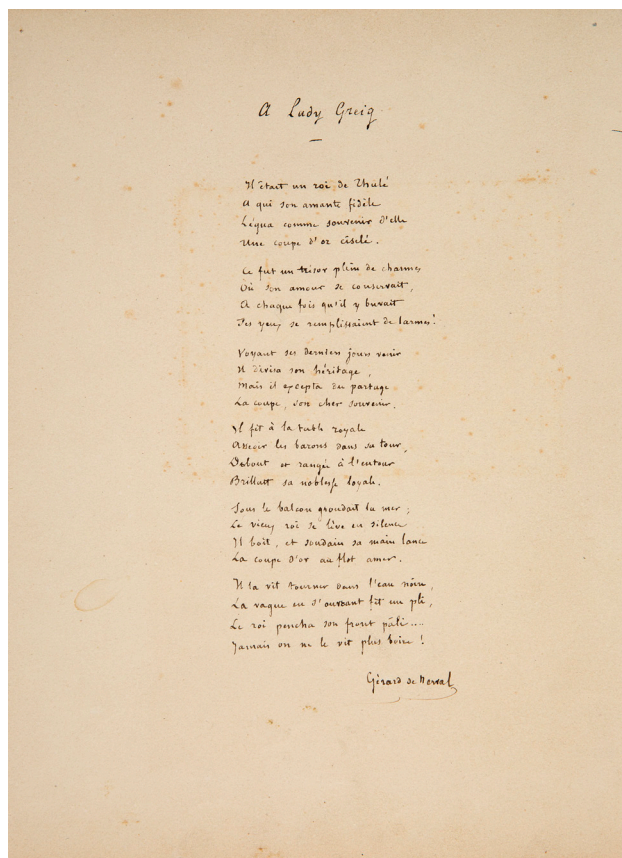 A Lady Greig
Il était un roi de Thulé
A qui son amante fidèle
Légua comme souvenir d'elle
Une coupe d'or ciselé.
Ce fut un trésor plein de charmes
Où son amour se conservait,
A chaque fois qu'il y buvait
Ses yeux se remplissaient de larmes !
Voyant ses derniers jours venir
Il divisa son héritage,
Mais il excepta du partage
La coupe, son cher souvenir.
Il fit à la table royale
Asseoir les barons dans sa tour,
Debout et rangée à l'entour
Brillait sa noblesse loyale.
Sous le balcon grondait la mer ;
Le vieux roi se lève en silence
Il boit, et soudain sa main lance
La coupe d'or au flot amer.
Il la vit tourner dans l'eau noire,
La vague en s'ouvrant fit un pli,
Le roi pencha son front pâli....
Jamais on ne le vit plus boire !
Gérard de Nerval